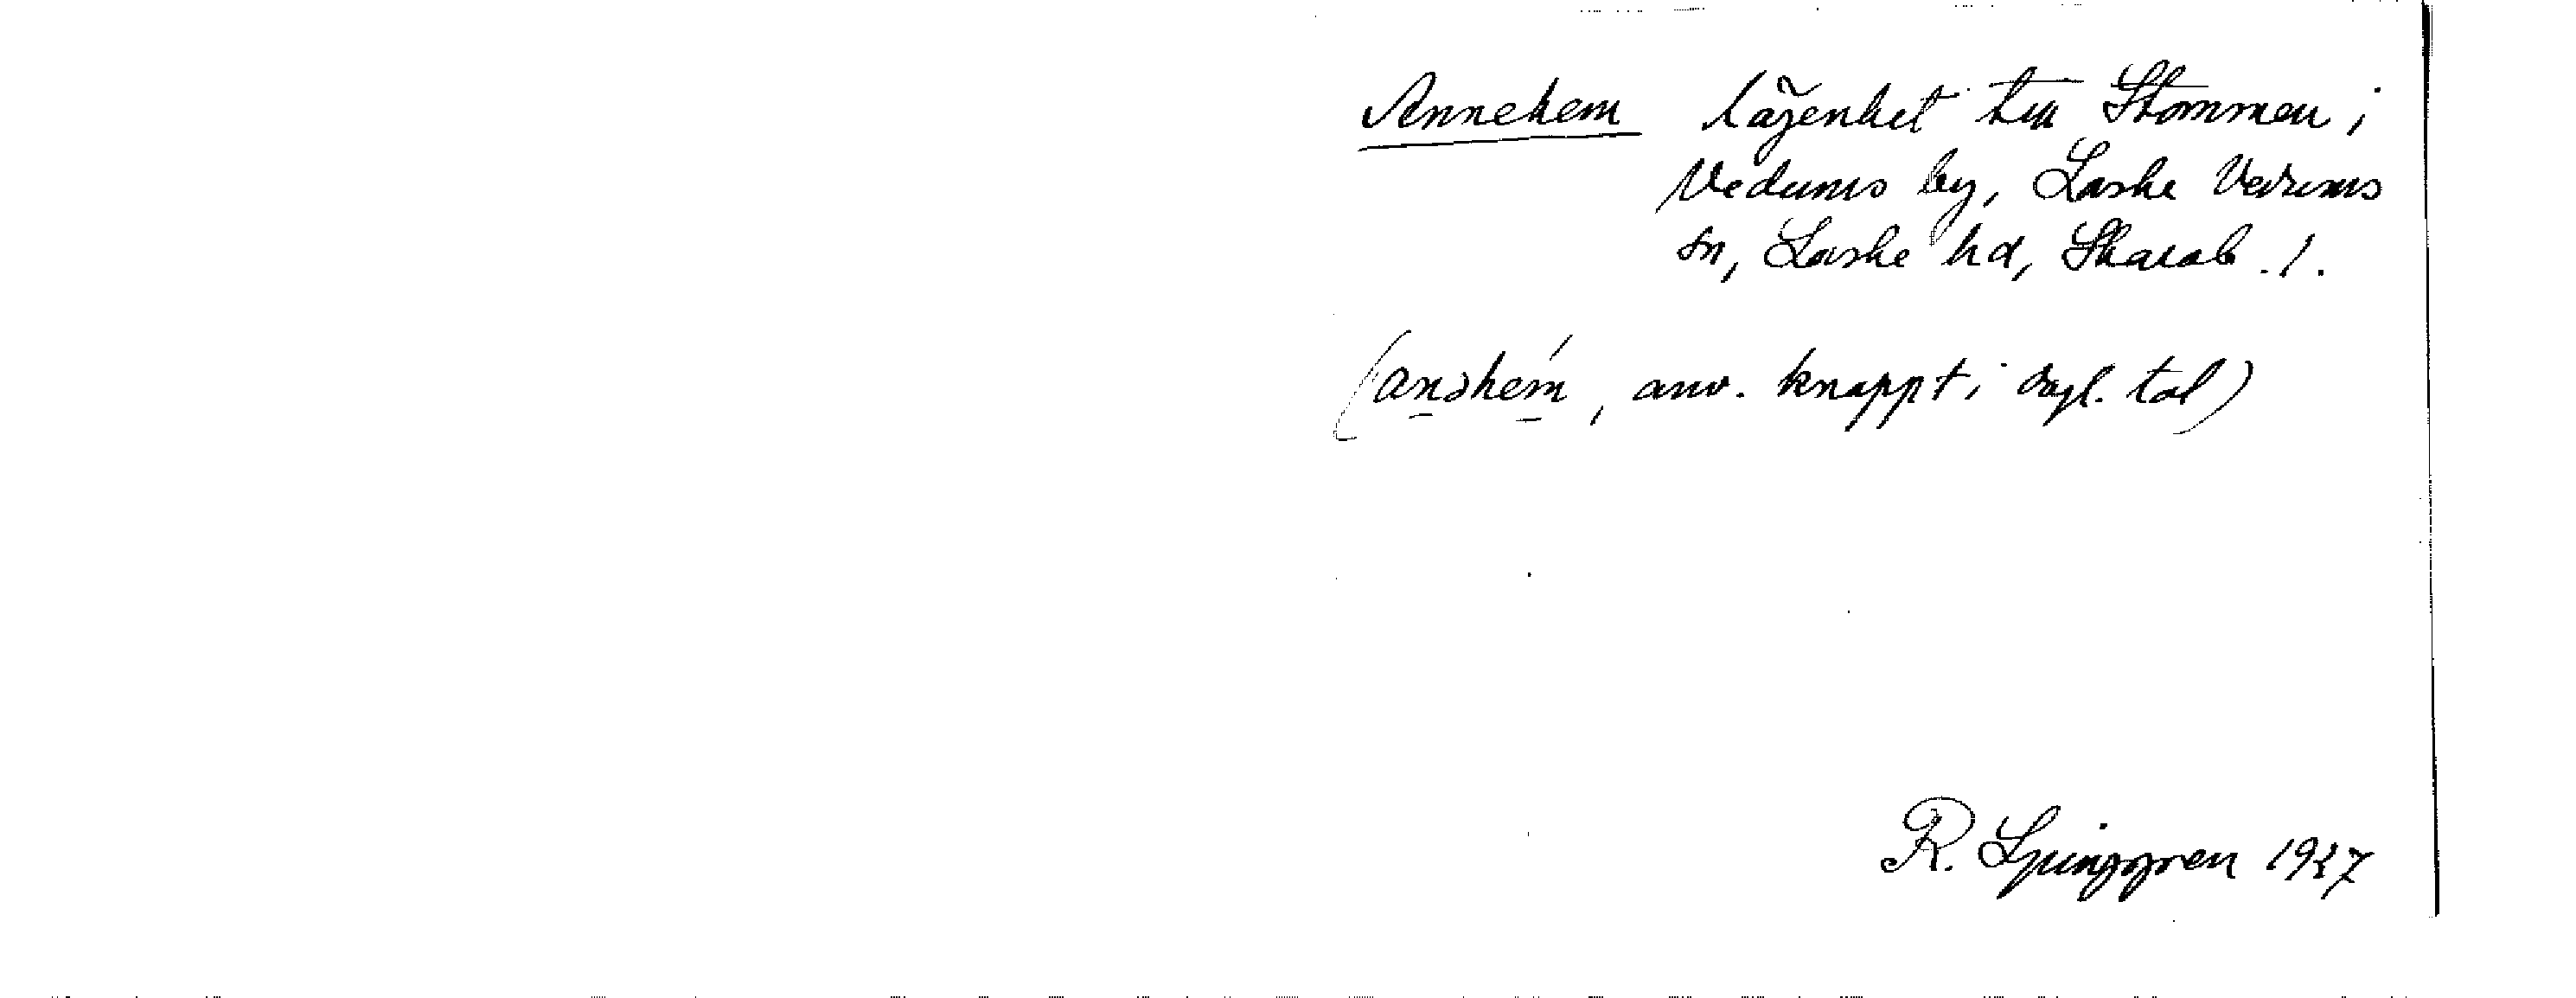 Annehem lägenhet till Stommen i
Vedums by, Laske Vedums
sn, Laske hd, Skarab. l.
(anəhem, anv. knappt i dagl. tal)
R. Ljunggren 1927